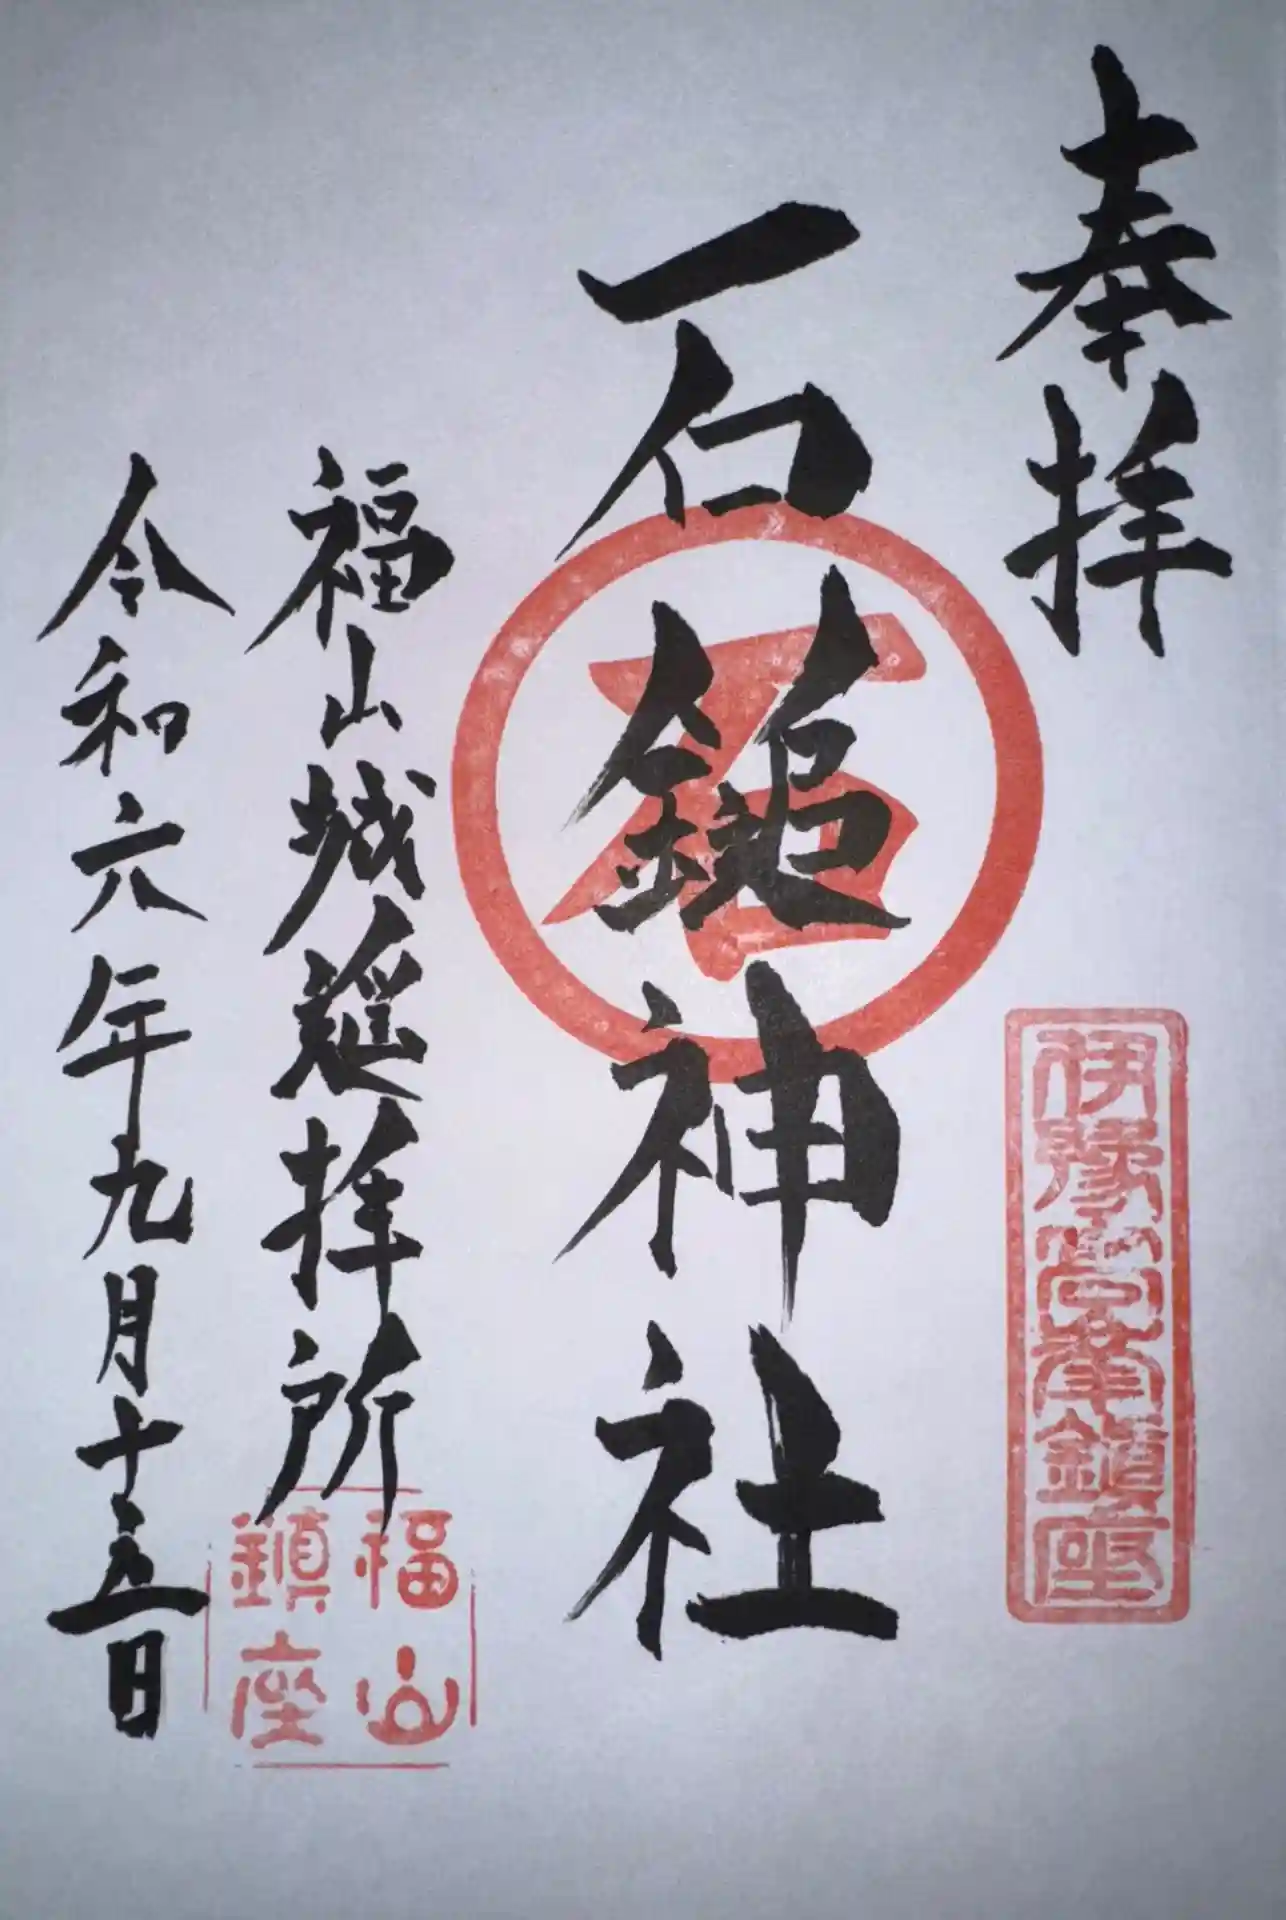 奉拝
伊豫高峯鎮座
石鎚神社
石
福山城遥拝所
福山
鎮座
令和六年九月十五日